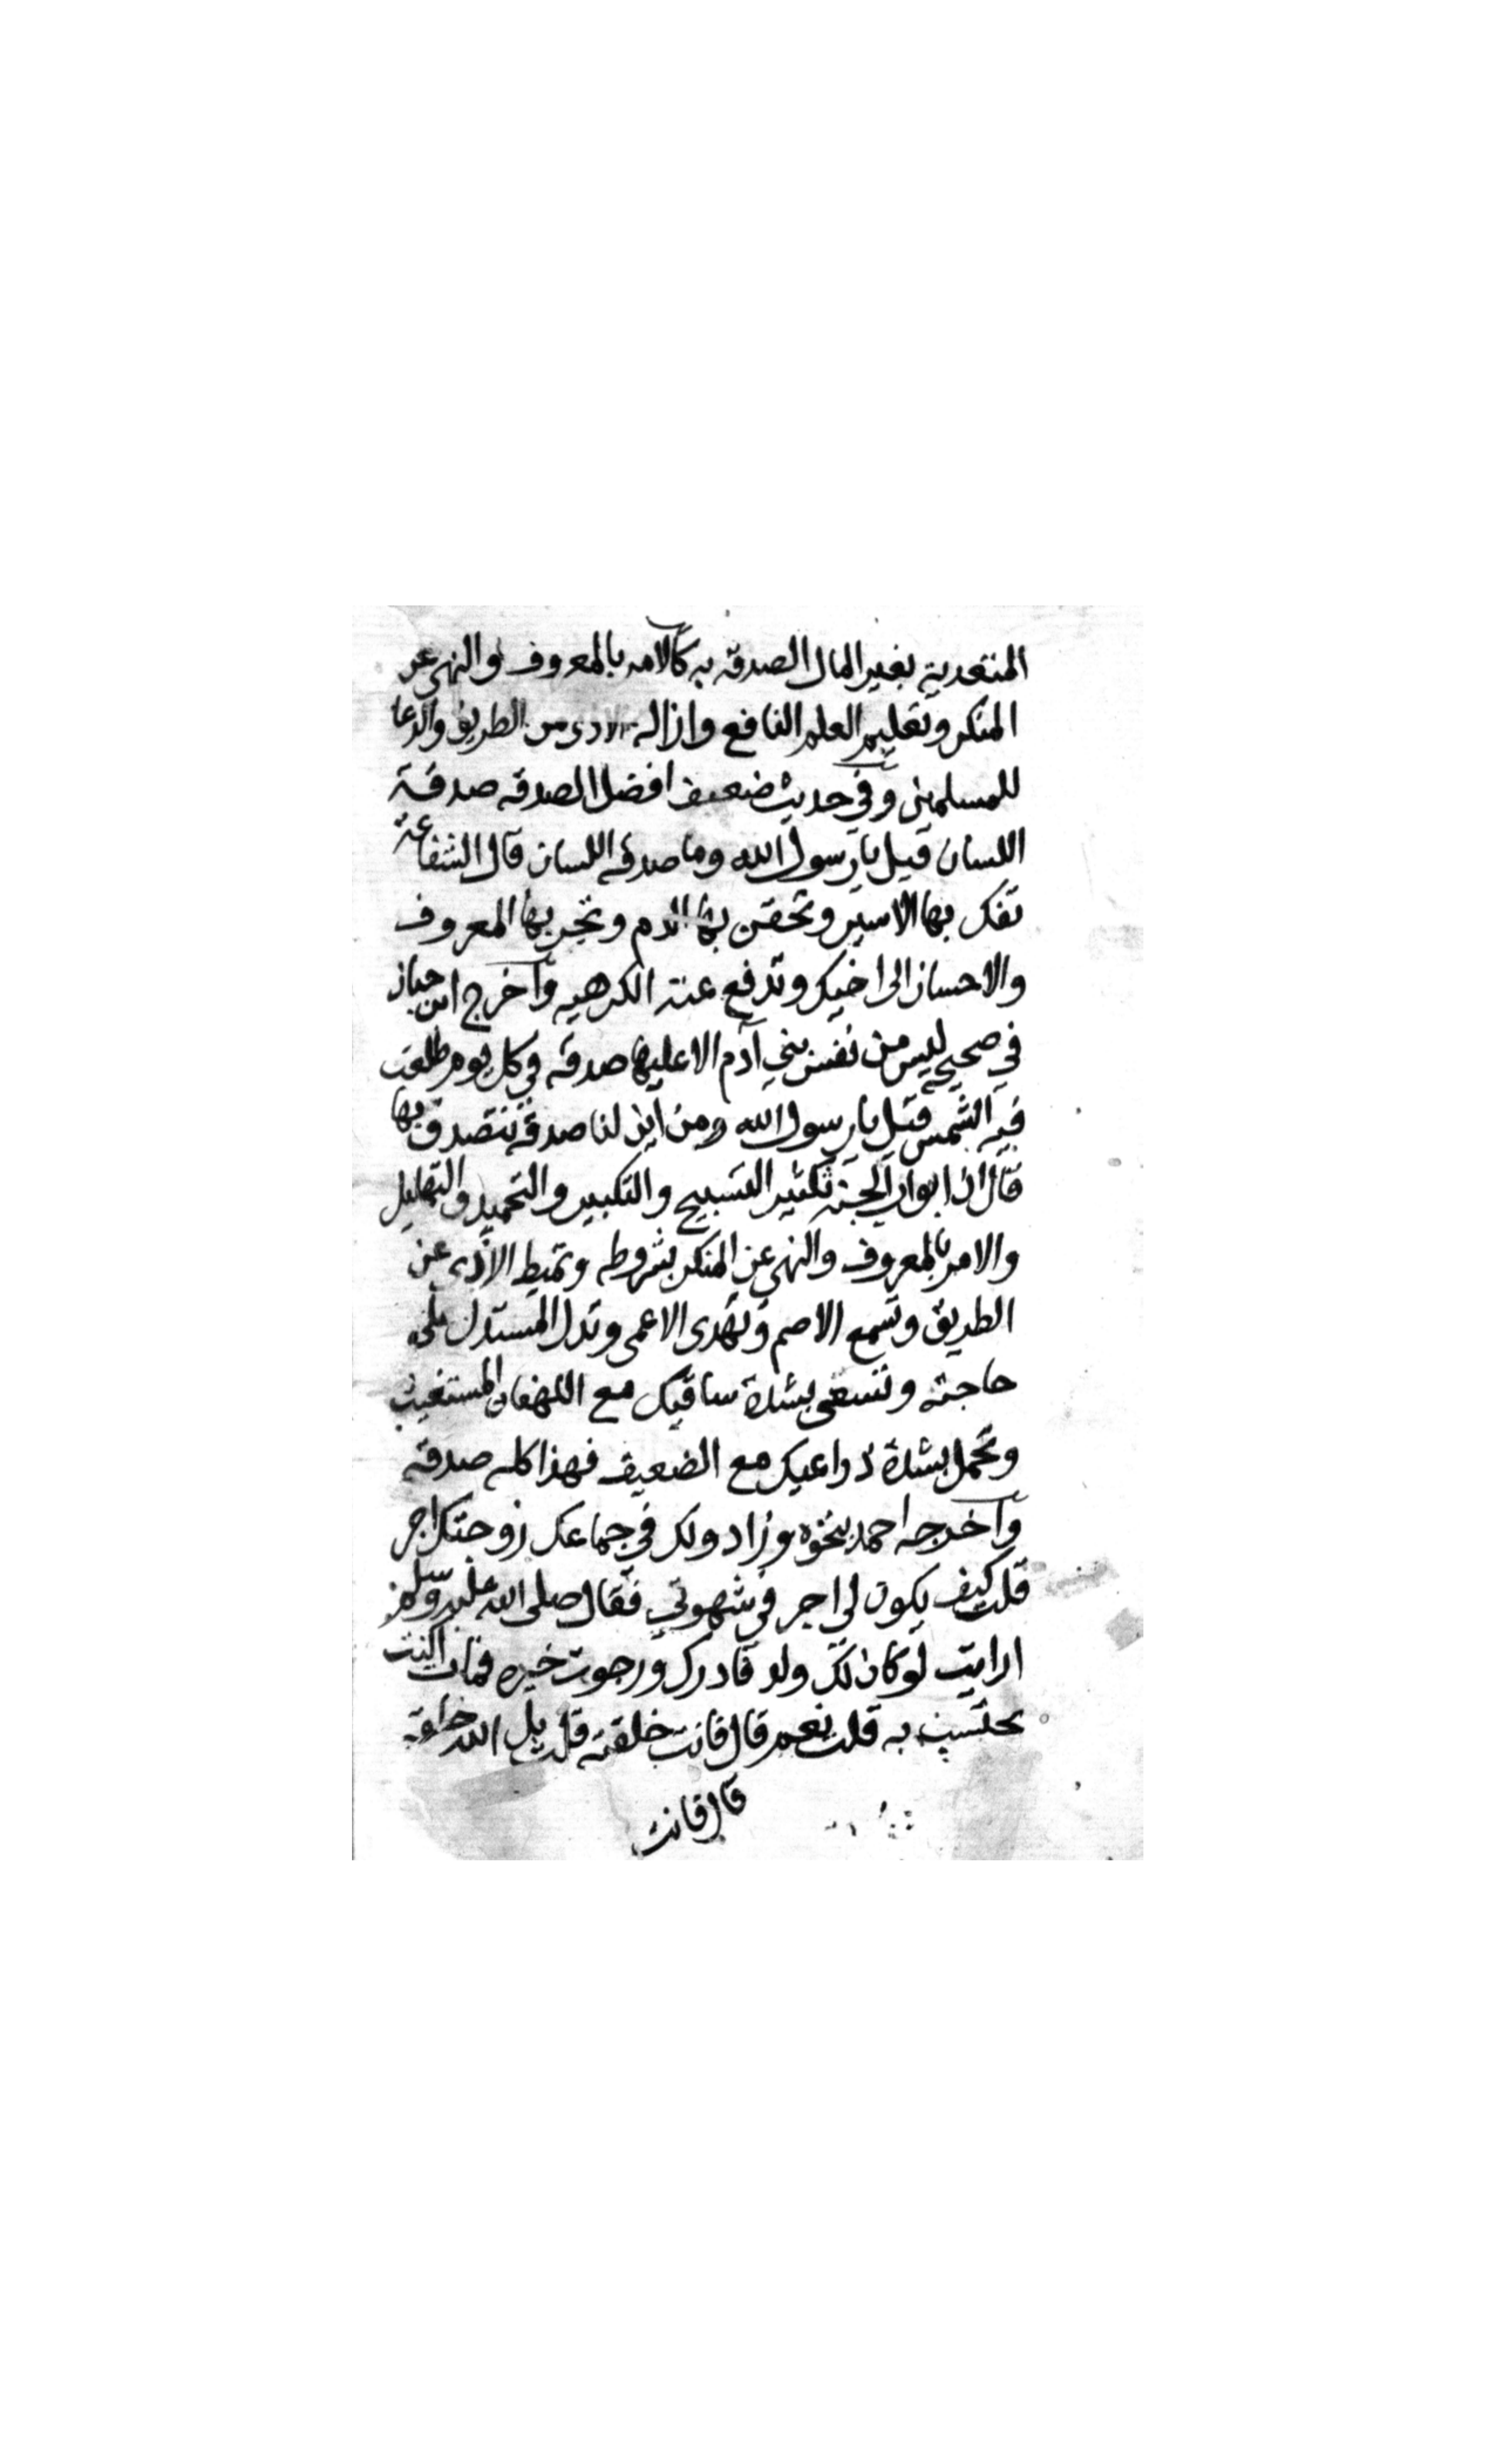 المتعدية بغير المال الصدقه به كالامر بالمعروف والنهي عن
المنكر وتعليم العلم النافع وازاله الاذى من الطريق والدعا
للمسلمين وفي حديث ضعيف افضل الصدقه صدقة
اللسان قيل يا رسول الله وما صدقه اللسان قال الشفاعة
تفك بها الاسير وتحقن بها الدم وتجر بها المعروف
والاحسان الى اخيك وتدفع عنه الكرهيه واخرج ابن حبان
في صحيحه ليس من نفس بني آدم الا عليها صدقه في كل يوم طلعت
فيه الشمس قيل يا رسول الله ومن اين لنا صدقه نتصدق بها
قال ان ابواب الجنه لكثير التسبيح والتكبير والتحميد والتهليل
والامر بالمعروف والنهي عن المنكر بشروطه وتميط الاذى عن
الطريق وتسمع الاصم وتهدى الاعمى وتدل المستدل على
حاجته وتسعى بشدة ساقيك مع اللهفان المستغيث
وتحمل بشدة ذراعيك مع الضعيف فهذا كله صدقه
واخرجه احمد بنحوه وزاد ولك في جماعك زوجتك اجر
قلت كيف يكون لي اجر في شهوتي فقال صلى الله عليه وسلم
ارايت لو كان لك ولد فادرك ورجوت خيره فمات اكنت
تحتسب به قلت نعم قال فانت خلقته قلت بل الله خلقه
قال فانت